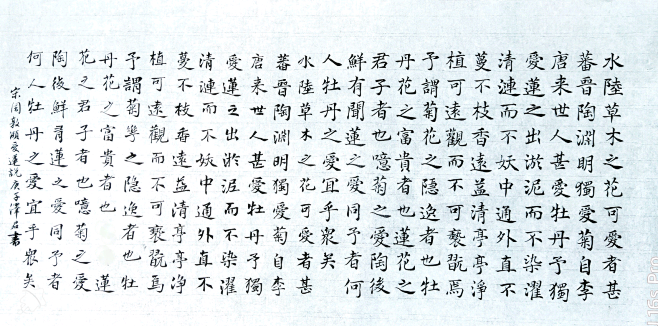 水陸草木之花可愛者甚
蕃晉陶淵明獨愛菊自李
唐来世人甚愛牡丹予獨
愛蓮之出淤泥而不染濯
清漣而不妖中通外直不
蔓不枝香遠益清亭亭淨
植可遠觀而不可褻翫焉
予謂菊花之隱逸者也牡
丹花之富貴者也蓮花之
君子者也噫菊之愛陶後
鮮有聞蓮之愛同予者何
人牡丹之愛宜乎眾矣
水陸草木之花可愛者甚
蕃晉陶淵明獨愛菊自李
唐来世人甚愛牡丹予獨
愛蓮之出淤泥而不染濯
清漣而不妖中通外直不
蔓不枝香遠益清亭亭淨
植可遠觀而不可褻翫焉
予謂菊之隱逸者也牡
丹花之富貴者也 蓮
花之君子者也噫菊之愛
陶後鮮蓮之愛同予者
何人牡丹之愛宜乎眾矣
宋周敦頤愛蓮說庚子澤石書
Pro